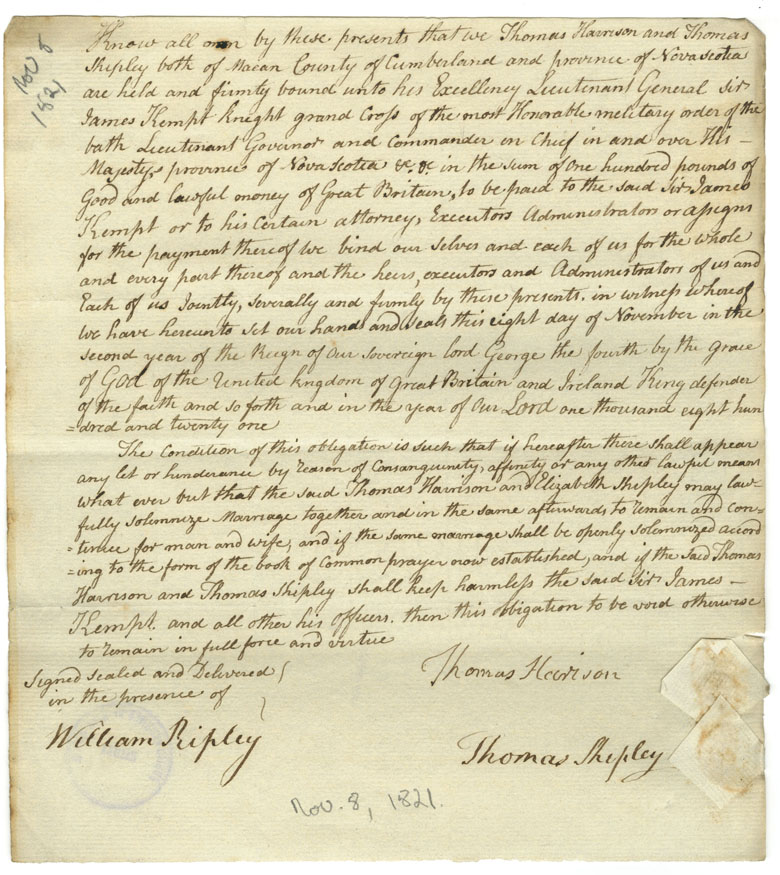 Nov 8
1821
Know all men by these presents that we Thomas Harrison and Thomas
Shipley both of Macan County of Cumberland and province of Nova Scotia
are held and firmly bound unto his Excellency Lieutenant General Sir
James Kempt knight grand Cross of the most Honorable melitary order of the
bath Lieutenant Governor and Commander in Chief in and over His -
Majestys province of Nova Scotia &c. &c in the sum of One hundred pounds of
Good and lawful money of Great Britain, to be paid to the said Sir James
Kempt or to his Certain attorney, Executors Administrators or assigns
for the payment thereof we bind our selves and each of us for the whole
and every part thereof and the heirs, executors and Administrators of us and
Each of us Jointly, Severally and firmly by these presents. in witness whereof
we have hereunto set our hand and seals this eight day of November in the
second year of the Reign of our sovereign lord George the fourth by the grace
of God of the United kingdom of Great Britain and Ireland King defender
of the faith and so forth and in the year of Our Lord one thousand eight hun
=dred and twenty one
The Condition of this obligation is such that if hereafter there shall appear
any let or hinderance by reason of Consanguinity, affinity or any other lawful means
what ever but that the said Thomas Harrison and Elizabeth Shipley may law=
fully solemnize Marriage together and in the same afterwards to remain and con=
=tinue for man and wife, and if the same marriage shall be openly solemnized acord
=ing to the form of the book of Common prayer now established, and if the said Thomas
Harrison and Thomas Shipley shall keep harmless the said Sir James -
Kempt. and all other his officers. then this obigation to be void otherwise
to remain in full force and virtue
Signed Sealed and Delivered
in the presence of
Thomas Harison
William Ripley
Thomas Shipley
Nov. 8, 1821.